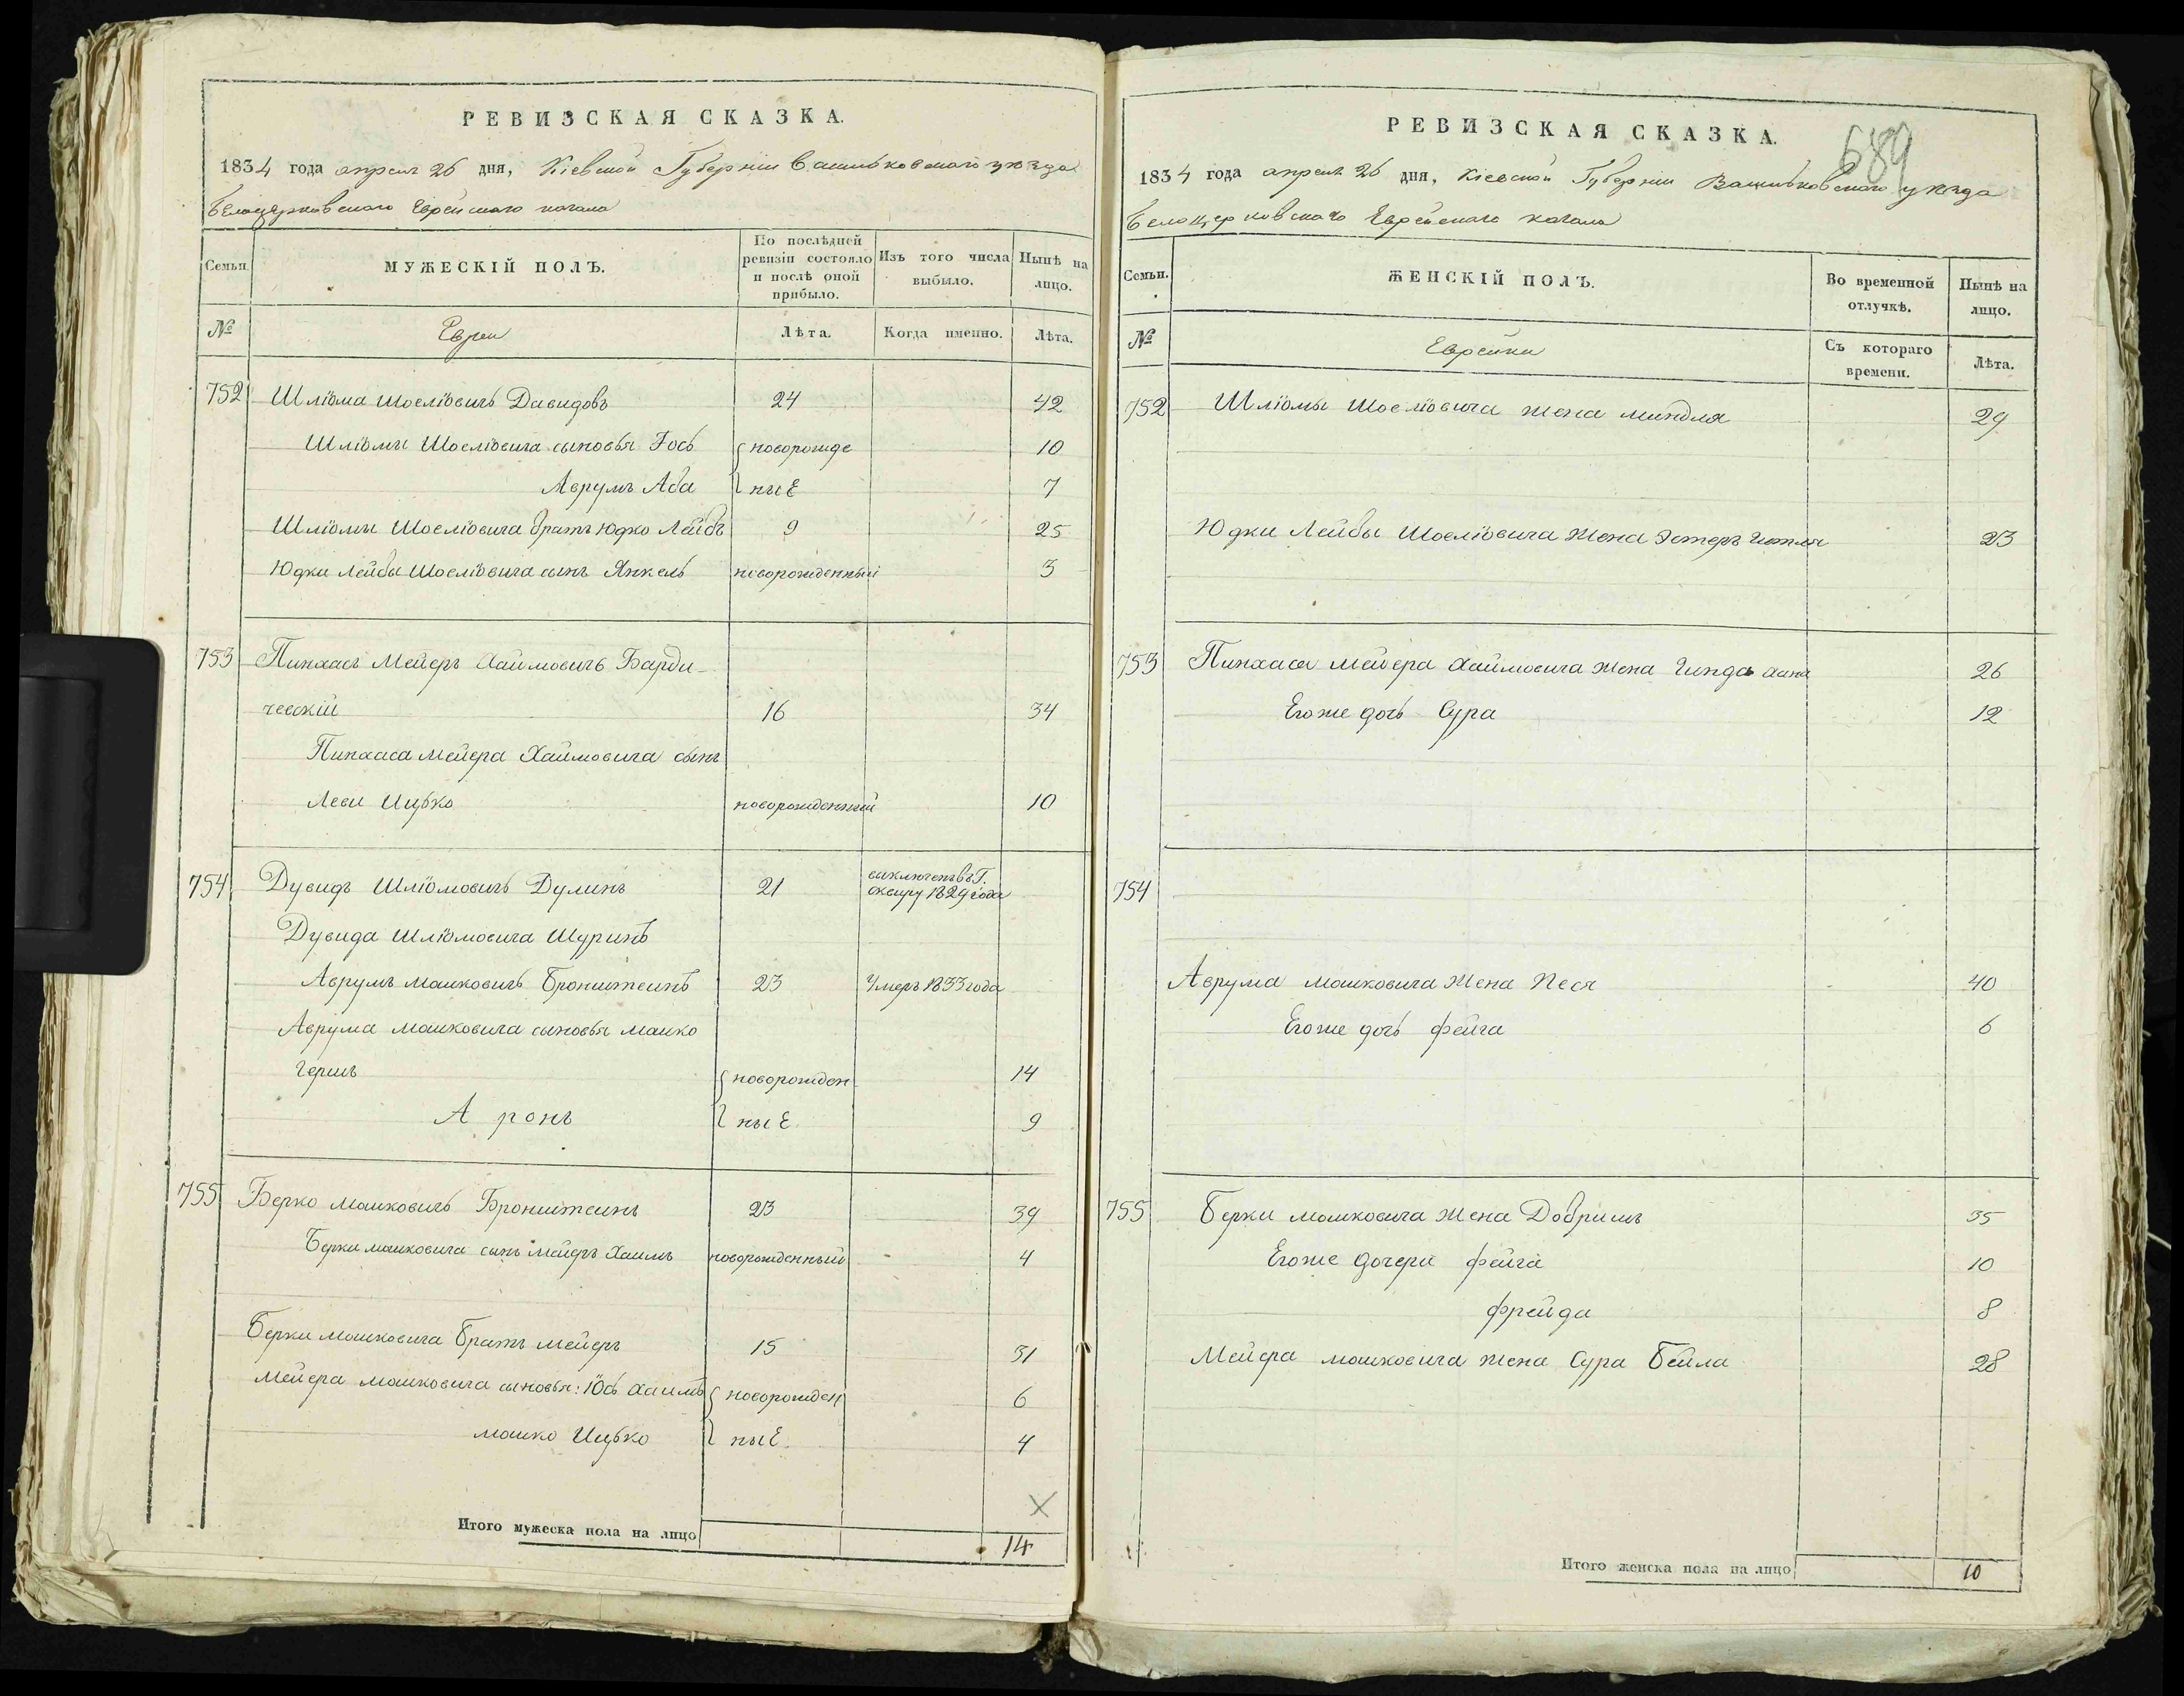 РЕВИЗСКАЯ СКАЗКА.
1834 года апреля 26 дня, Кіевской Губерніи Васильковскаго уѣзда
Белоцерковскаго Еврейскаго кагала
Семьи.
МУЖЕСКІЙ ПОЛЪ.
По послѣдней ревизіи состояло и послѣ оной прибыло.
Изъ того числа выбыло.
Нынѣ на лицо.
№
Евреи
Лѣта.
Когда именно.
Лѣта.
752 Шліома Шоеліовичъ Давидовъ 24 42
Шліомы Шоеліовича сыновья Іось новорожде 10
Аврумъ Аба ные 7
Шліомы Шоеліовича братъ Юдко Лейбъ 9 25
Юдки Лейбы Шоеліовича сынъ Янкель новорожденный 3
753 Пинхасъ Мейеръ Хаимовичъ Барди-
чевскій 16 34
Пинхаса Мейера Хаимовича сынъ
Леви Ицько новорожденный 10
754 Дувидъ Шліомовичъ Дулинъ 21 вог.
сквиру 1829 года
Дувида Шліомовича Шуринъ
Аврумъ Мошковичъ Бронштеинъ 23 Умеръ 1833 года
Аврума Мошковича сыновья Мошко
Гершъ новорожден 14
Аронъ ные 9
755 Берко Мошковичъ Бронштеинъ 23 39
Берки Мошковича сынъ Мейеръ Хаимъ новорожденный 4
Берки Мошковича братъ Мейеръ 15 31
Мейера Мошковича сыновья: Іось Хаимъ новорожден 6
Мошко Ицько ные 4
Итого мужеска пола на лицо 14
РЕВИЗСКАЯ СКАЗКА.
689
1834 года апреля 26 дня, Кіевской Губерніи Васильковскаго уѣзда
Белоцерковскаго Еврейскаго кагала
Семьи.
ЖЕНСКІЙ ПОЛЪ.
Во временной отлучкѣ.
Нынѣ на лицо.
№
Еврейки
Съ котораго времени.
Лѣта.
752 Шліомы Шоеліовича жена Миндля 29
Юдки Лейбы Шоеліовича жена Эстеръ Гитля 23
753 Пинхаса Мейера Хаимовича жена Гинда Хана 26
Егоже дочь Сура 12
754
Аврума Мошковича жена Песя 40
Егоже дочь Фейга 6
755 Берки Мошковича жена Добришъ 35
Егоже дочери Фейга 10
Фрейда 8
Мейера Мошковича жена Сура Бейла 28
Итого женска пола на лицо 10